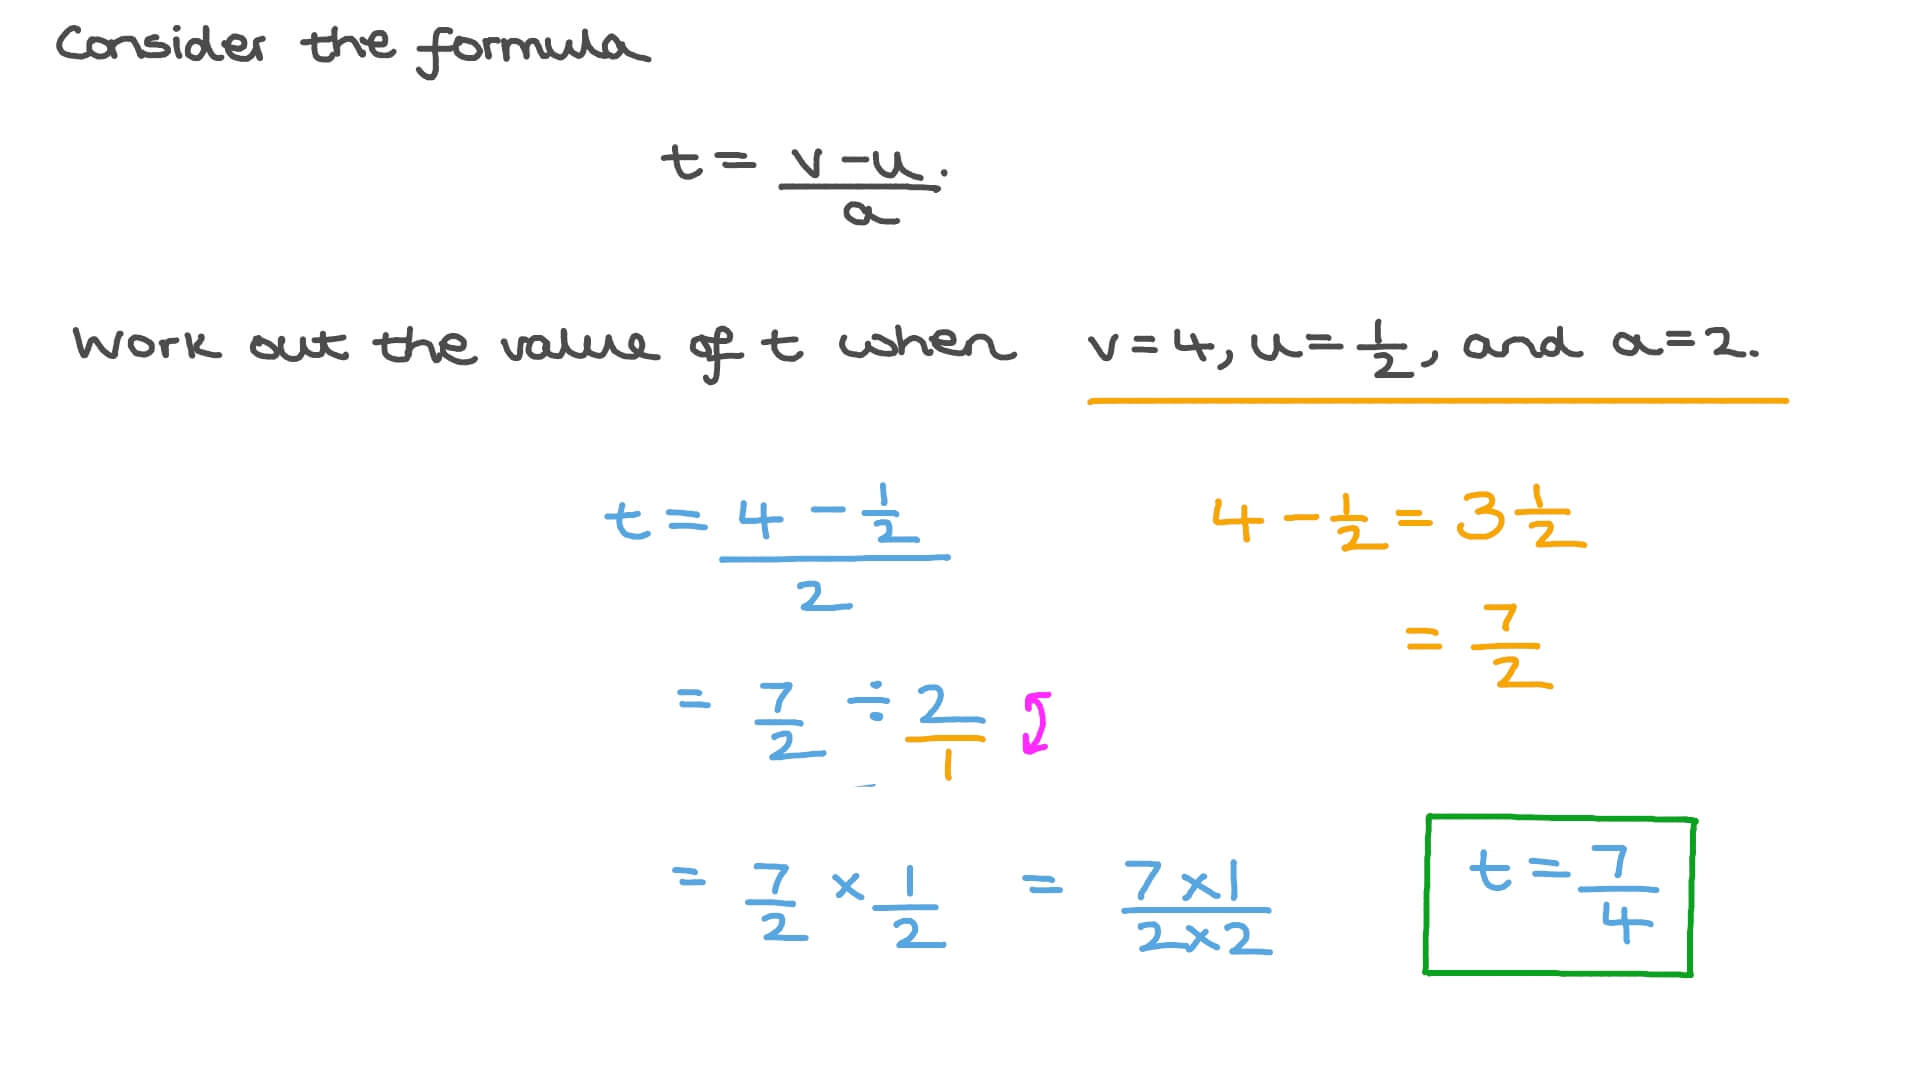 Consider the formula
t = v-u/a.
Work out the value of t when v=4, u=1/2, and a=2.
t = (4 - 1/2)/2
4 - 1/2 = 3 1/2
= 7/2
= 7/2 ÷ 2/1
= 7/2 × 1/2 = 7×1/2×2
t = 7/4